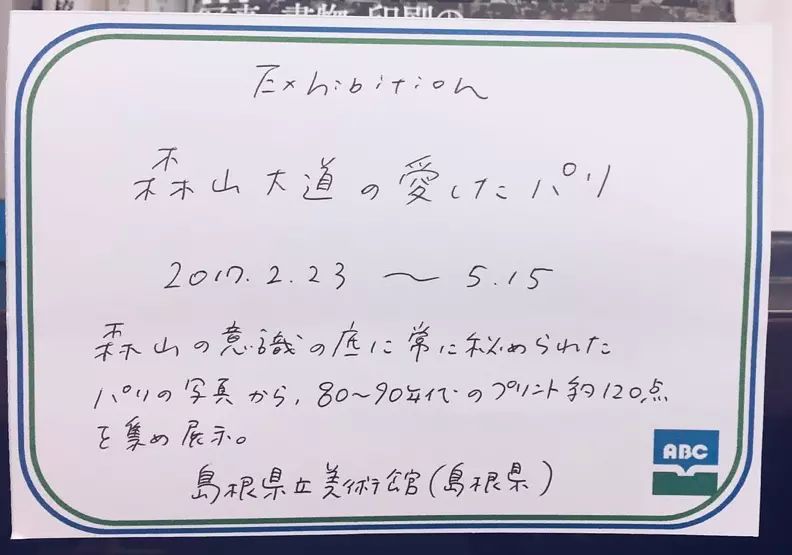 写真 書物 印刷の
Exhibition
森山大道の愛したパリ
2017.2.23 〜 5.15
森山の意識の底に常に秘められた
パリの写真から、80〜90年代のプリント約120点
を集め展示。
島根県立美術館(島根県)
ABC